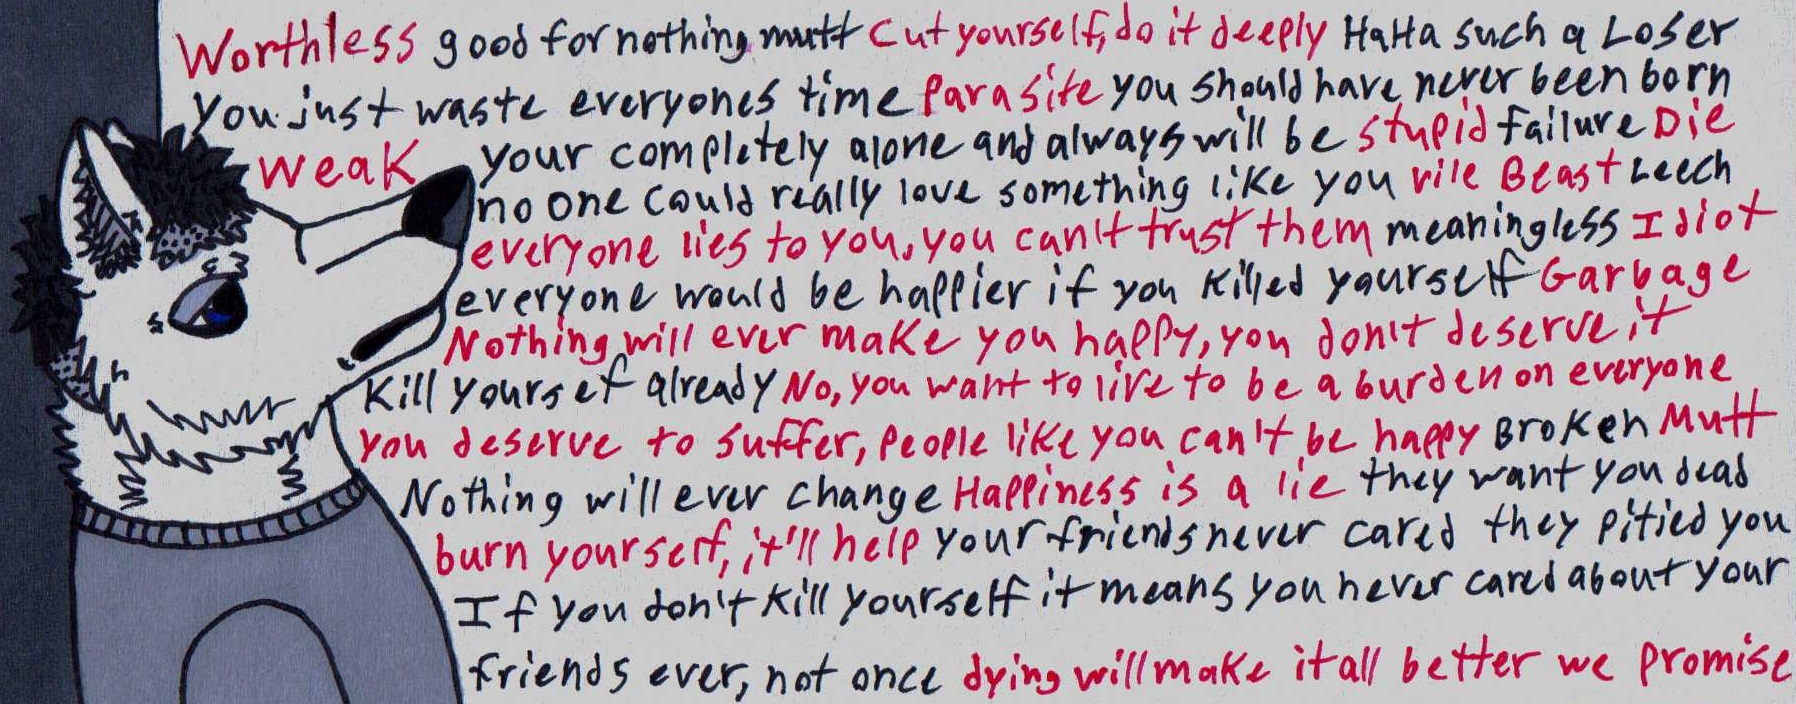 Worthless good for nothing mutt Cut yourself, do it deeply HaHa such a Loser
You just waste everyones time Parasite you should have never been born
Weak your completely alone and always will be stupid failure Die
no one could really love something like you vile Beast Leech
everyone lies to you, you can't trust them meaningless Idiot
everyone would be happier if you killed yourself Garbage
Nothing will ever make you happy, you don't deserve it
Kill yourself already No, you want to live to be a burden on everyone
You deserve to suffer, people like you can't be happy Broken Mutt
Nothing will ever change Happiness is a lie they want you dead
burn yourself, it'll help your friends never cared they pitied you
If you don't kill yourself it means you never cared about your
friends ever, not once dying will make it all better we promise